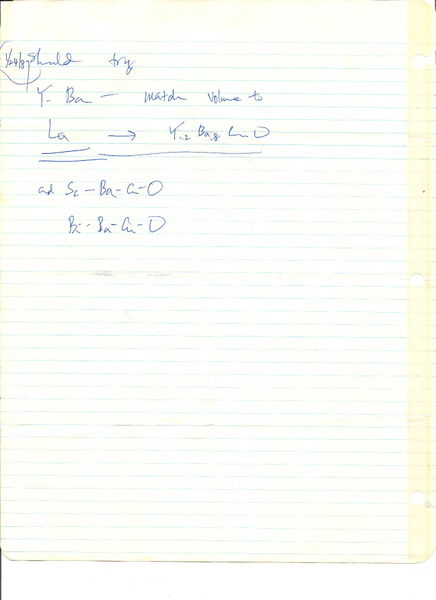 1/24/87 Should try
Y- Ba – match volume to
La → Y.2 Ba.8 Cu O
and Sc–Ba-Cu-O
Bi-Ba-Cu-O